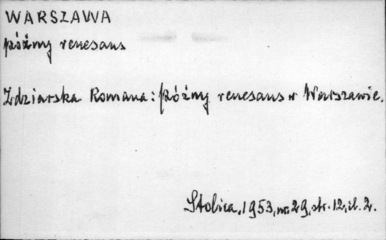 WARSZAWA
późny renesans
Zdziarska Romana: Późny renesans w Warszawie.
Stolica, 1953, nr 29, str. 12, il. 2.